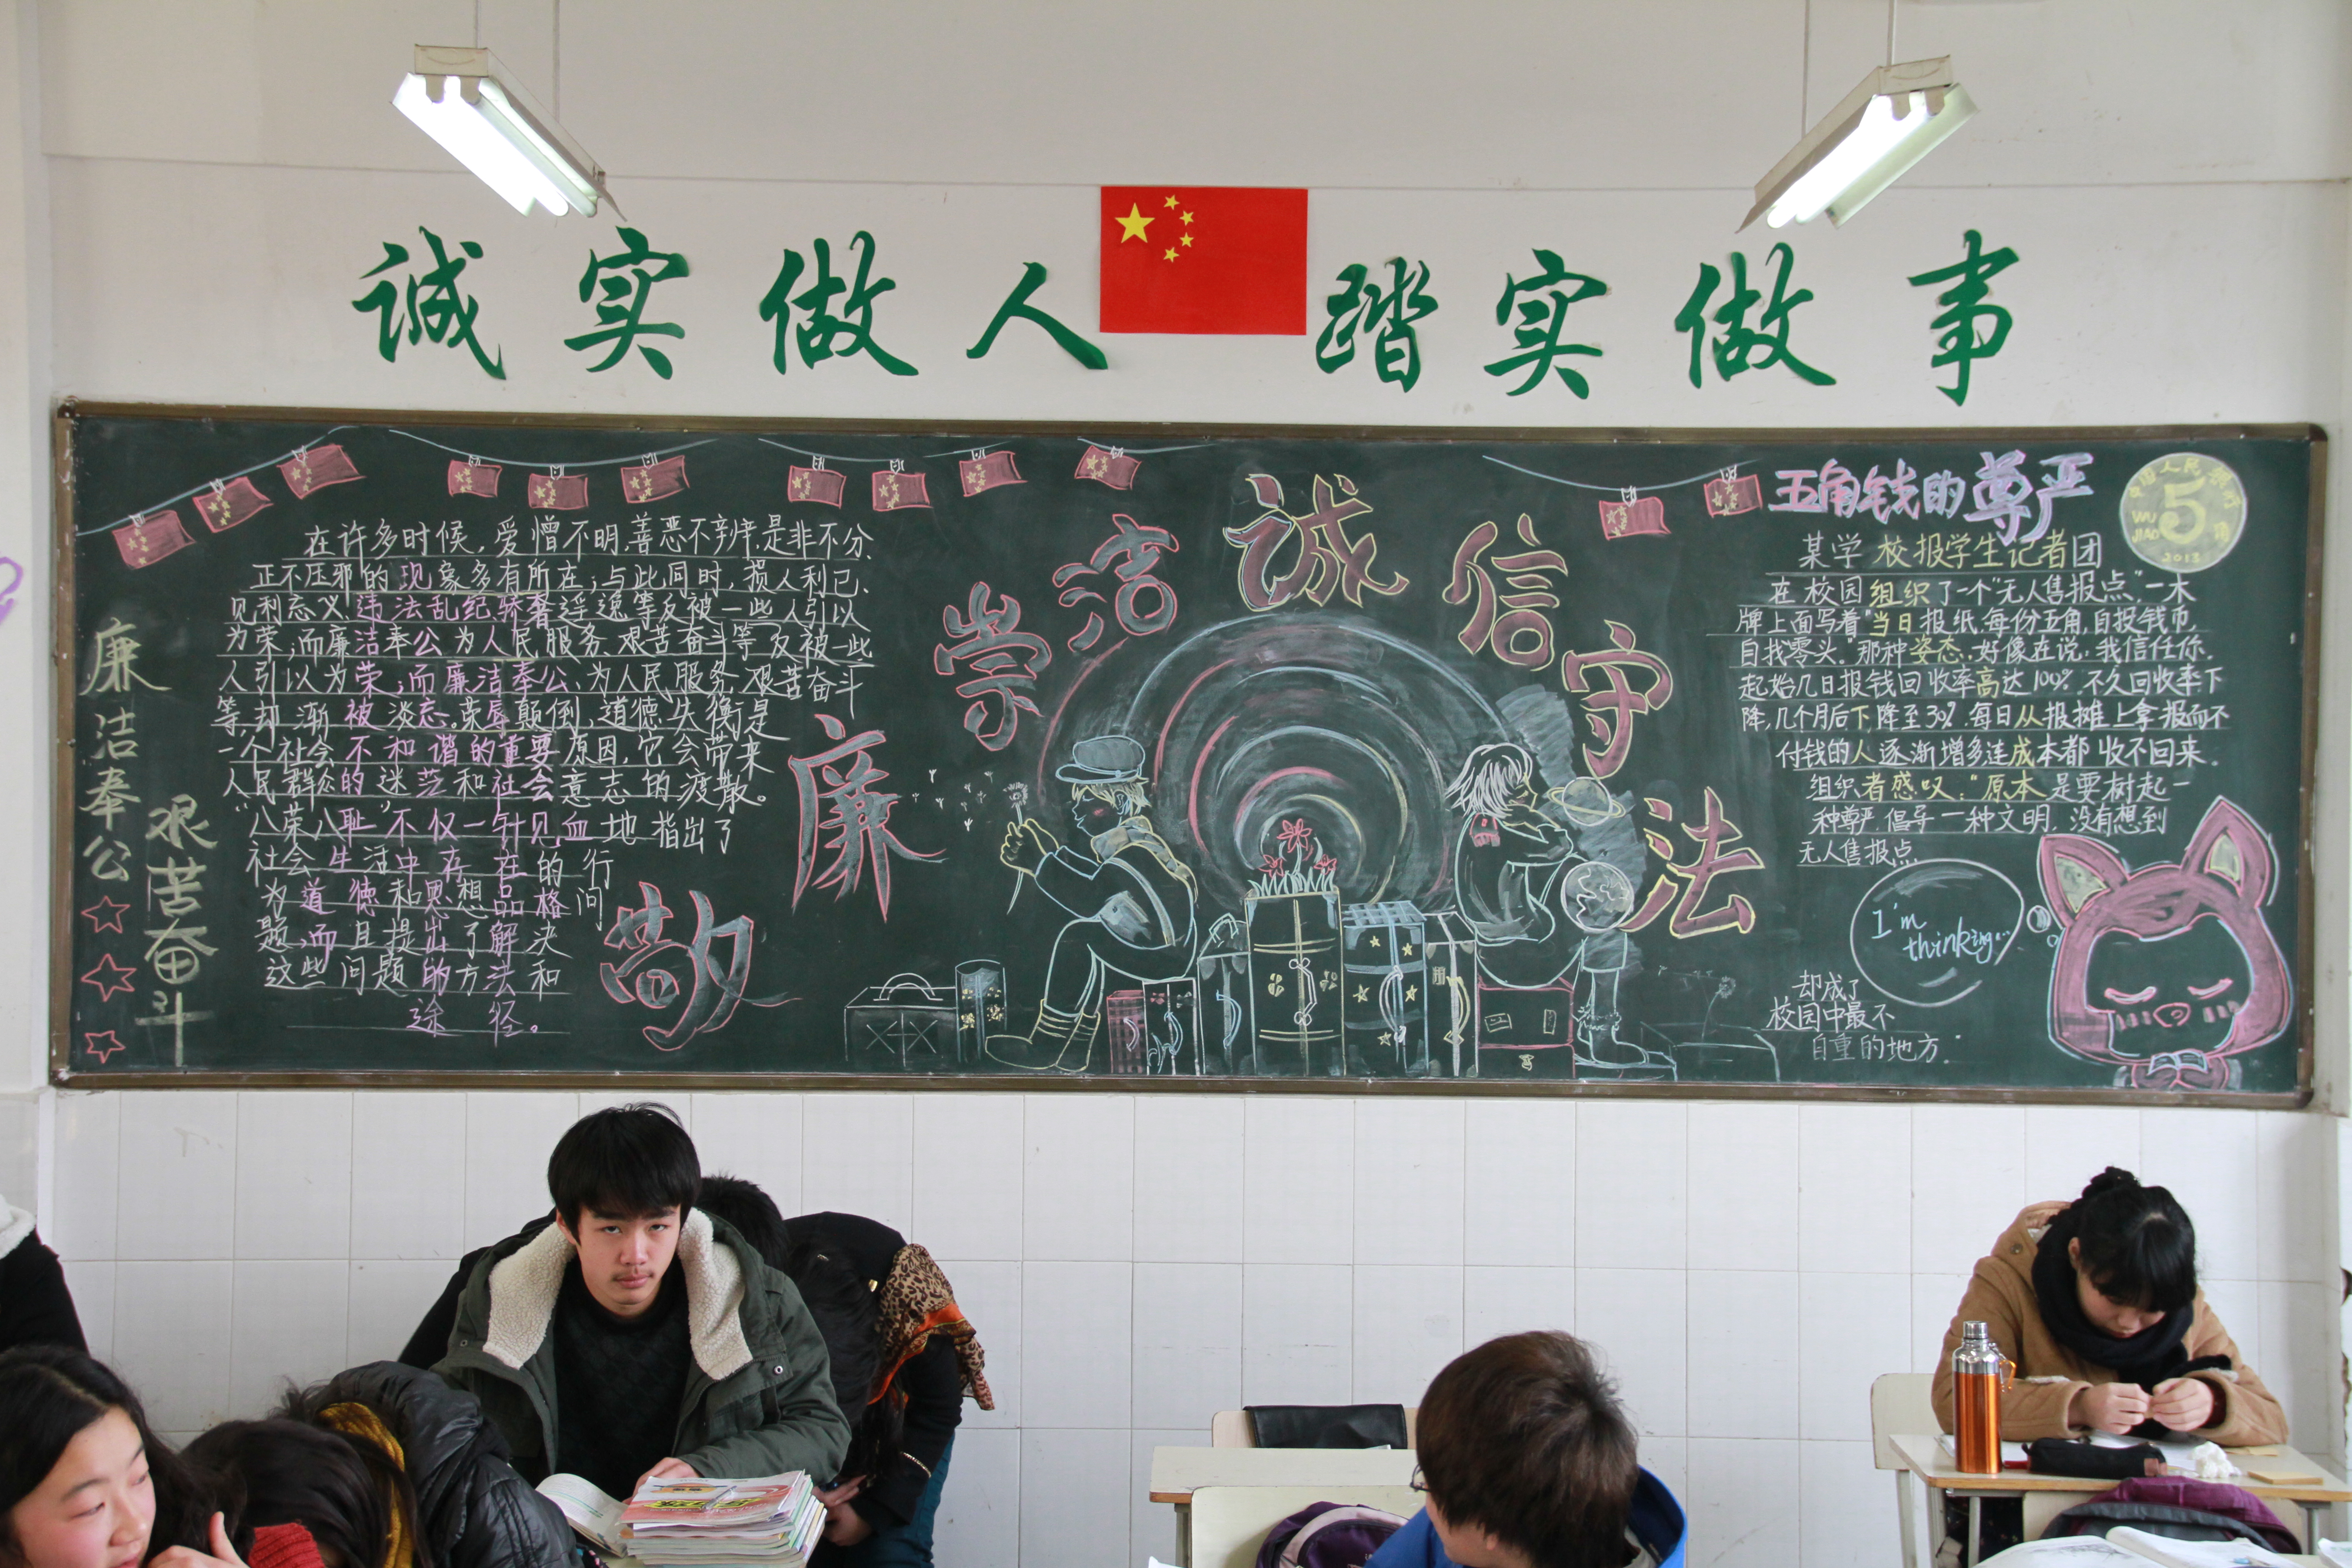 诚实做人 踏实做事
敬廉崇洁诚信守法
廉洁奉公
艰苦奋斗
在许多时候,爱憎不明,善恶不辨,是非不分、
正不压邪的现象多有所在;与此同时,损人利己、
见利忘义、违法乱纪骄奢淫逸等反被一些人引以
为荣,而廉洁奉公为人民服务、艰苦奋斗等反被一些
人引以为荣;而廉洁奉公、为人民服务、艰苦奋斗
等,却渐被淡忘。荣辱颠倒、道德失衡是
一个社会不和谐的重要原因,它会带来
人民群众的迷茫和社会意志的疲散。
“八荣八耻”不仅一针见血地指出了
社会生活中存在的行
为道德和思想品格问
题,而且提出了解决
这些问题的方法和
途径。
五角钱的尊严
中国人民银行
WU JIAO
5
角
2013
某学校报学生记者团
在校园组织了一个“无人售报点”,一木
牌上面写着“当日报纸,每份五角,自投钱币,
自找零头。”那种姿态,好像在说,我信任你.
起始几日报钱回收率高达100%.不久回收率下
降,几个月后下降至30%.每日从报摊上拿报而不
付钱的人逐渐增多连成本都收不回来.
组织者感叹:“原本是要树起一
种尊严.倡导一种文明.没有想到
无人售报点
却成了
校园中最不
自重的地方.”
I'm
thinking...